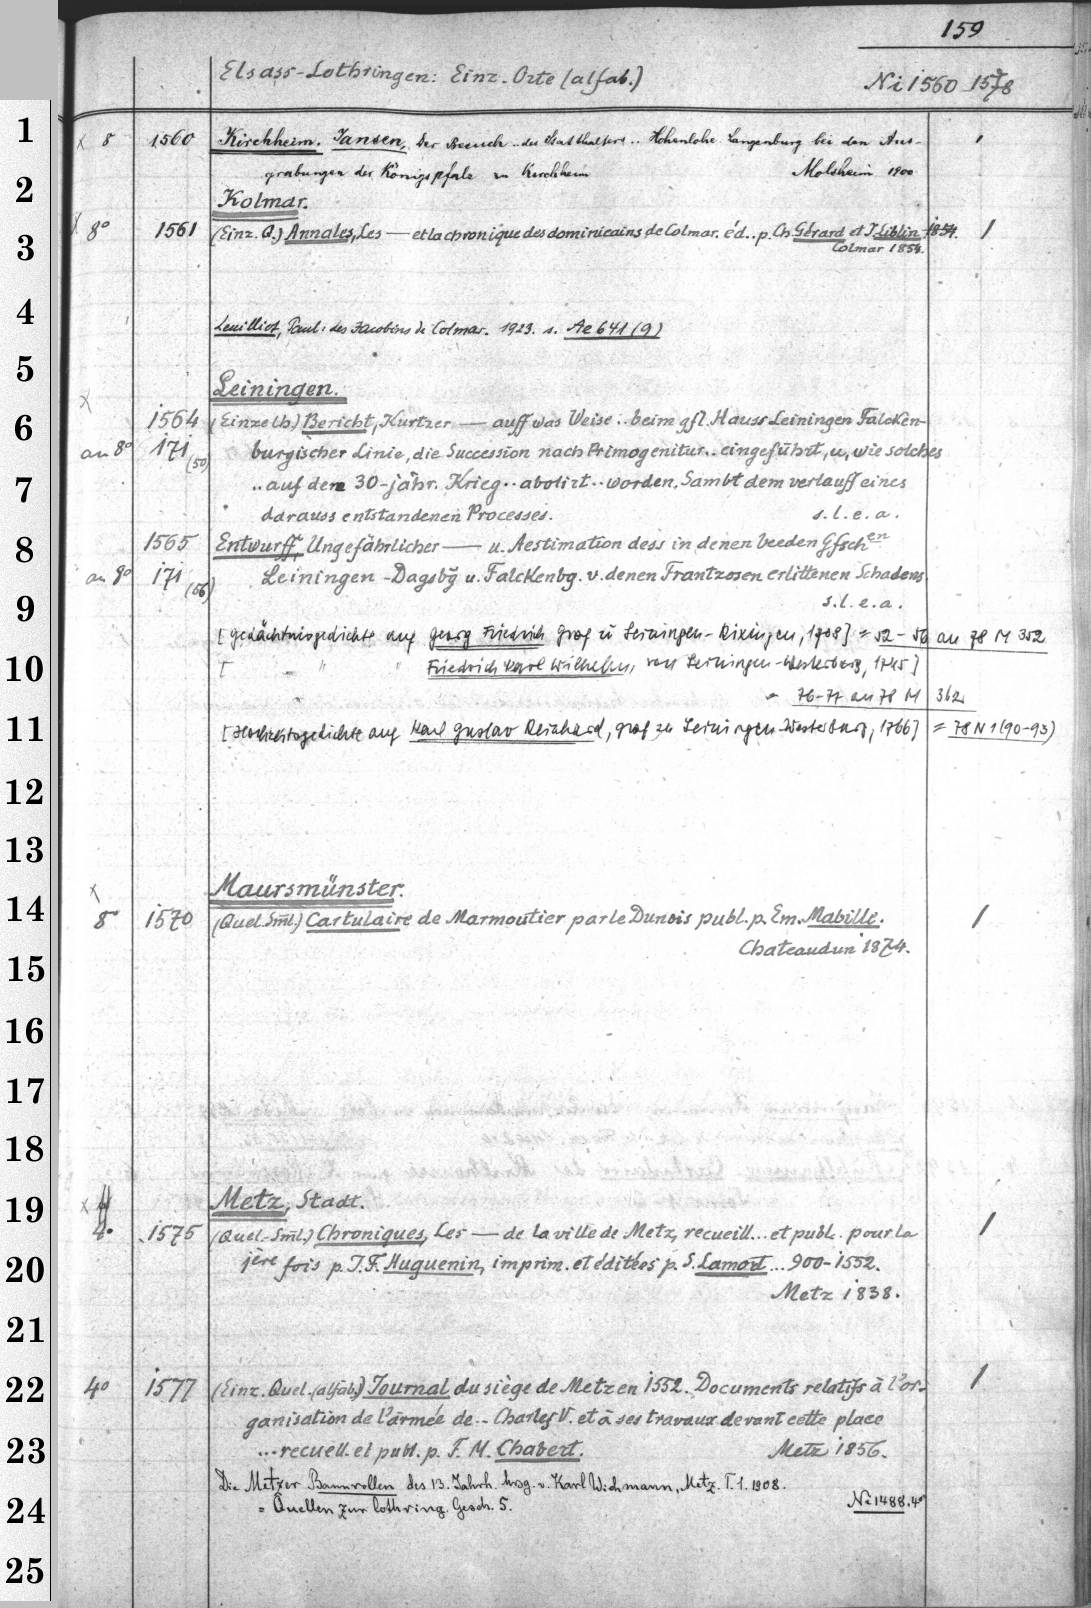 159
Elsass-Lothringen: Einz. Orte (alfab.) Ni 1560 1578
1 x 8 1560 Kirchheim. Jansen, Der Besuch .. des Statthalters .. Hohenlohe Langenburg bei den Aus- 1
grabungen der Königspfalz zu Kirchheim Molsheim 1900
2 Kolmar.
3 x 8° 1561 (Einz. Q.) Annales, Les — et la chronique des dominicains de Colmar. éd.. p. Ch. Gérard et J. Liblin 1854. 1
Colmar 1854.
4 Leuilliot, Paul: des Jacobins de Colmar. 1923. s. Ae 641 (9)
5 Leiningen.
x
6 1564 (Einzelh.) Bericht, Kurtzer — auff was Weise .. beim gfl. Hauss Leiningen Falcken-
an 8° 171 (50) burgischer Linie, die Succession nach Primogenitur.. eingeführt, u. wie solches
7 .. auf dem 30-jähr. Krieg .. abolirt .. worden. Sambt dem verlauff eines
darauss entstandenen Processes. s. l. e. a.
8 1565 Entwurff, Ungefährlicher — u. Aestimation dess in denen beeden Gfschen
an 8° 171 (56) Leiningen-Dagsbg u. Falckenbg. v. denen Frantzosen erlittenen Schadens
9 s. l. e. a.
[Gedächtnisgedichte auf Georg Friedrich Graf zu Leiningen-Rixingen, 1708] = 52-56 an 78 M 352
10 [ " " Friedrich Karl Wilhelm, von Leiningen-Westerburg, 1745]
= 76-77 an 78 M 362
11 [Hochzeitsgedichte auf Karl Gustav Reinhard, Graf zu Leiningen-Westerburg, 1766] = 78 N 1 (90-93)
12
13
x Maursmünster.
14 8° 1570 (Quel. Sml.) Cartulaire de Marmoutier par le Dunois publ. p. Em. Mabille. 1
Chateaudun 1874.
15
16
17
18
19 x 4. Metz, Stadt.
1575 (Quel.-Sml.) Chroniques, Les — de la ville de Metz, recueill... et publ. pour la 1
20 jère fois p. J. F. Huguenin, imprim. et éditées p. S. Lamort ... 900-1552.
Metz 1838.
21
22 4° 1577 (Einz. Quel. (alfab.)) Journal du siège de Metz en 1552. Documents relatifs à l'or- 1
ganisation de l'armée de .. Charles V. et à ses travaux devant cette place
23 ... recueill. et publ. p. F. M. Chabert. Metz 1856.
Die Metzer Bannrollen des 13. Jahrh. hrsg. v. Karl Wichmann, Metz. T. 1. 1908.
24 = Quellen zur lothring. Gesch. 5. Ni 1488. 4°
25